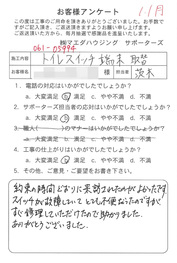 お客様アンケート
11月
この度は工事のご用命を頂きありがとうございました。お手数で
すが下記ご記入頂き、ご返送頂きますようお願い申し上げます。
ご返送頂いた方から、毎月抽選で感謝品を進呈いたします。
㈱マエダハウジング サポーターズ
061-05994
トイレスイッチ 取替
様 担当者 茨木
1. 電話の対応はいかがでしたでしょうか?
a. 大変満足 b. 満足 c. やや不満 d. 不満
2. サポーターズ担当者の対応はいかがでしたでしょうか?
a. 大変満足 b. 満足 c. やや不満 d. 不満
3. 職人( )のマナーはいかがでしたでしょうか?
a. 大変満足 b. 満足 c. やや不満 d. 不満
4. 工事の仕上がりはいかがでしたでしょうか?
a. 大変満足 b. 満足 c. やや不満 d. 不満
5. その他、ご意見・ご要望をお聞かせ下さい。
約束の時間どおりに来訪されたのがよかったです
スイッチが故障していてとても不便だったのですぐに
修理していただけたので助かりました。
ありがとうございました。